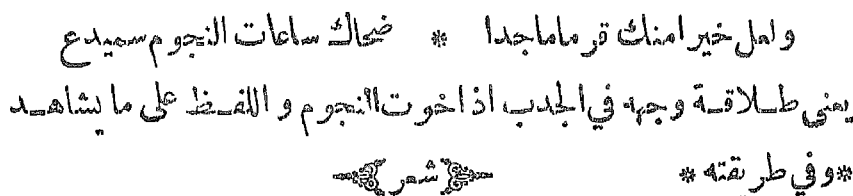 ولعل خيرا منك قرما ماجدا * ضحاك ساعات النجوم سميدع
يعني طلاقة وجهه في الجدب اذا خوت النجوم و اللفظ على ما يشاهد
*وفي طريقته * شعر